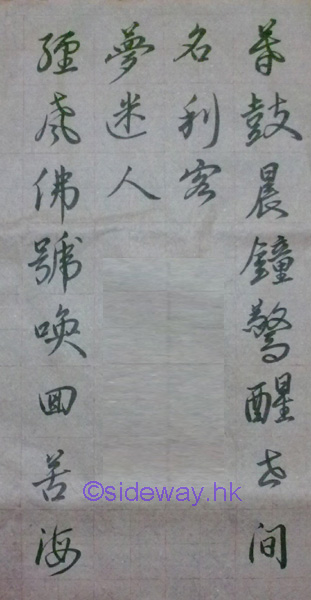 暮鼓晨鐘驚醒世间
名利客
經聲佛號喚囬苦海
夢迷人
©sideway.hk